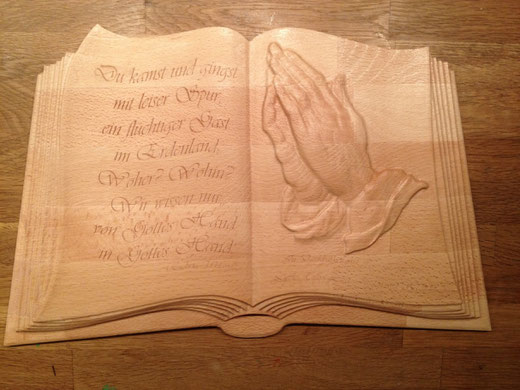 Du kamst und gingst
mit leiser Spur,
ein flüchtiger Gast
im Erdenland.
Woher? Wohin?
Wir wissen nur:
von Gottes Hand
in Gottes Hand.